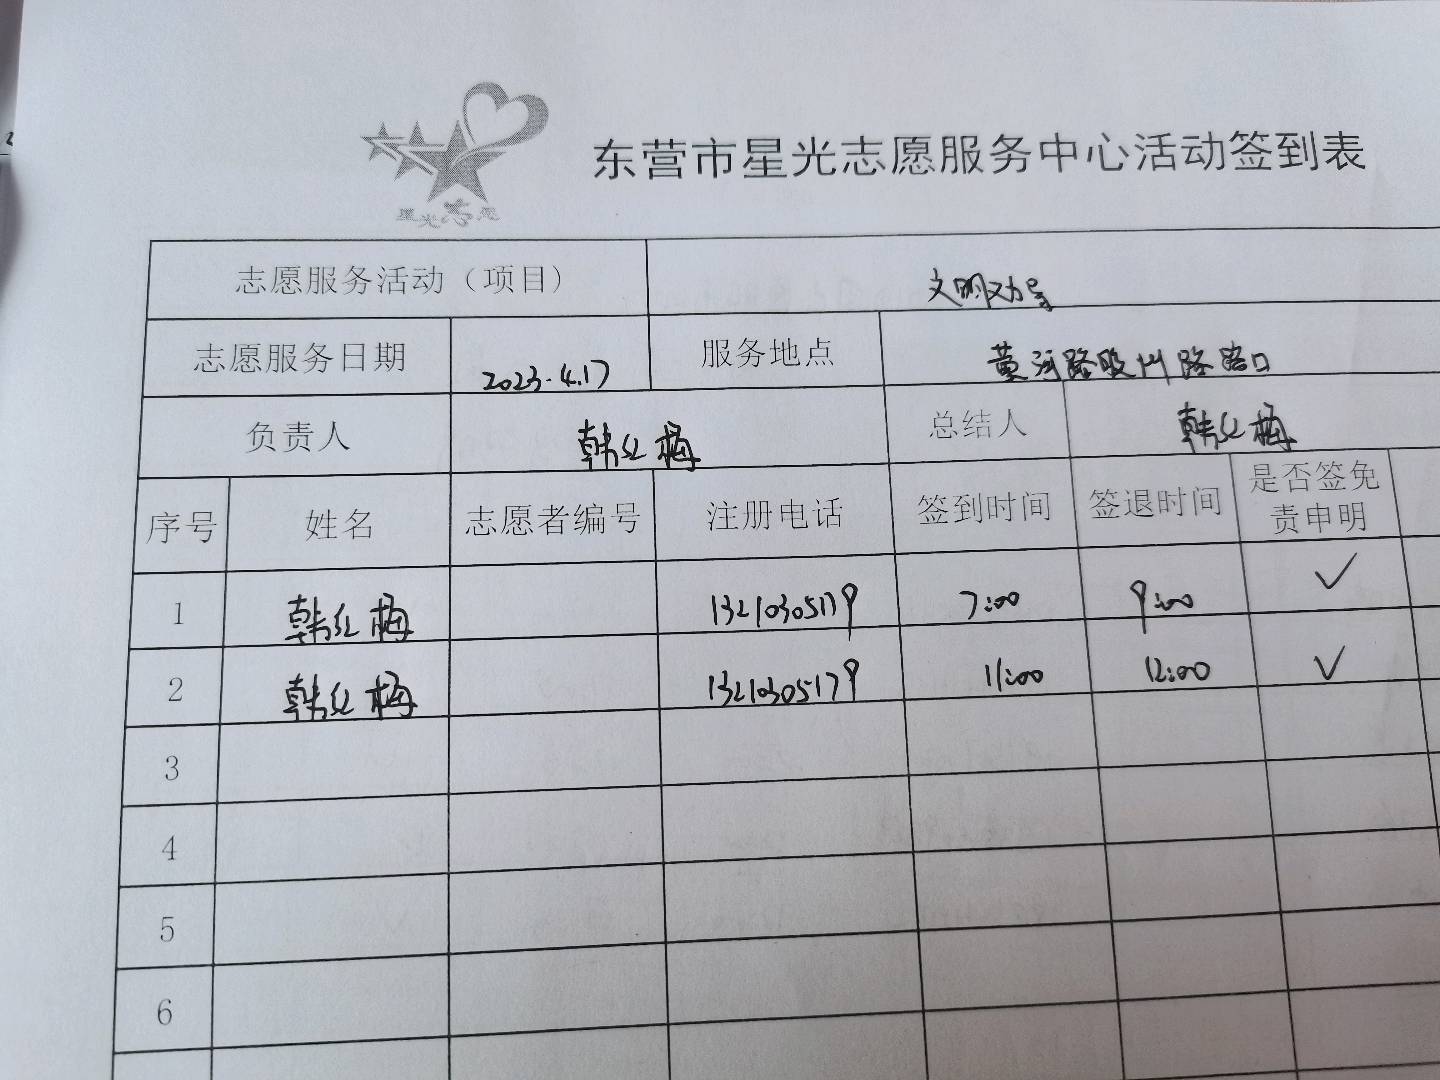 星光志愿
东营市星光志愿服务中心活动签到表
志愿服务活动（项目） 文明劝导
志愿服务日期 2023.4.17 服务地点 黄河路胶州路路口
负责人 韩红梅 总结人 韩红梅
序号 姓名 志愿者编号 注册电话 签到时间 签退时间 是否签免
责申明
1 韩红梅 13210305179 7:00 9:00 ✓
2 韩红梅 13210305179 11:00 12:00 ✓
3
4
5
6